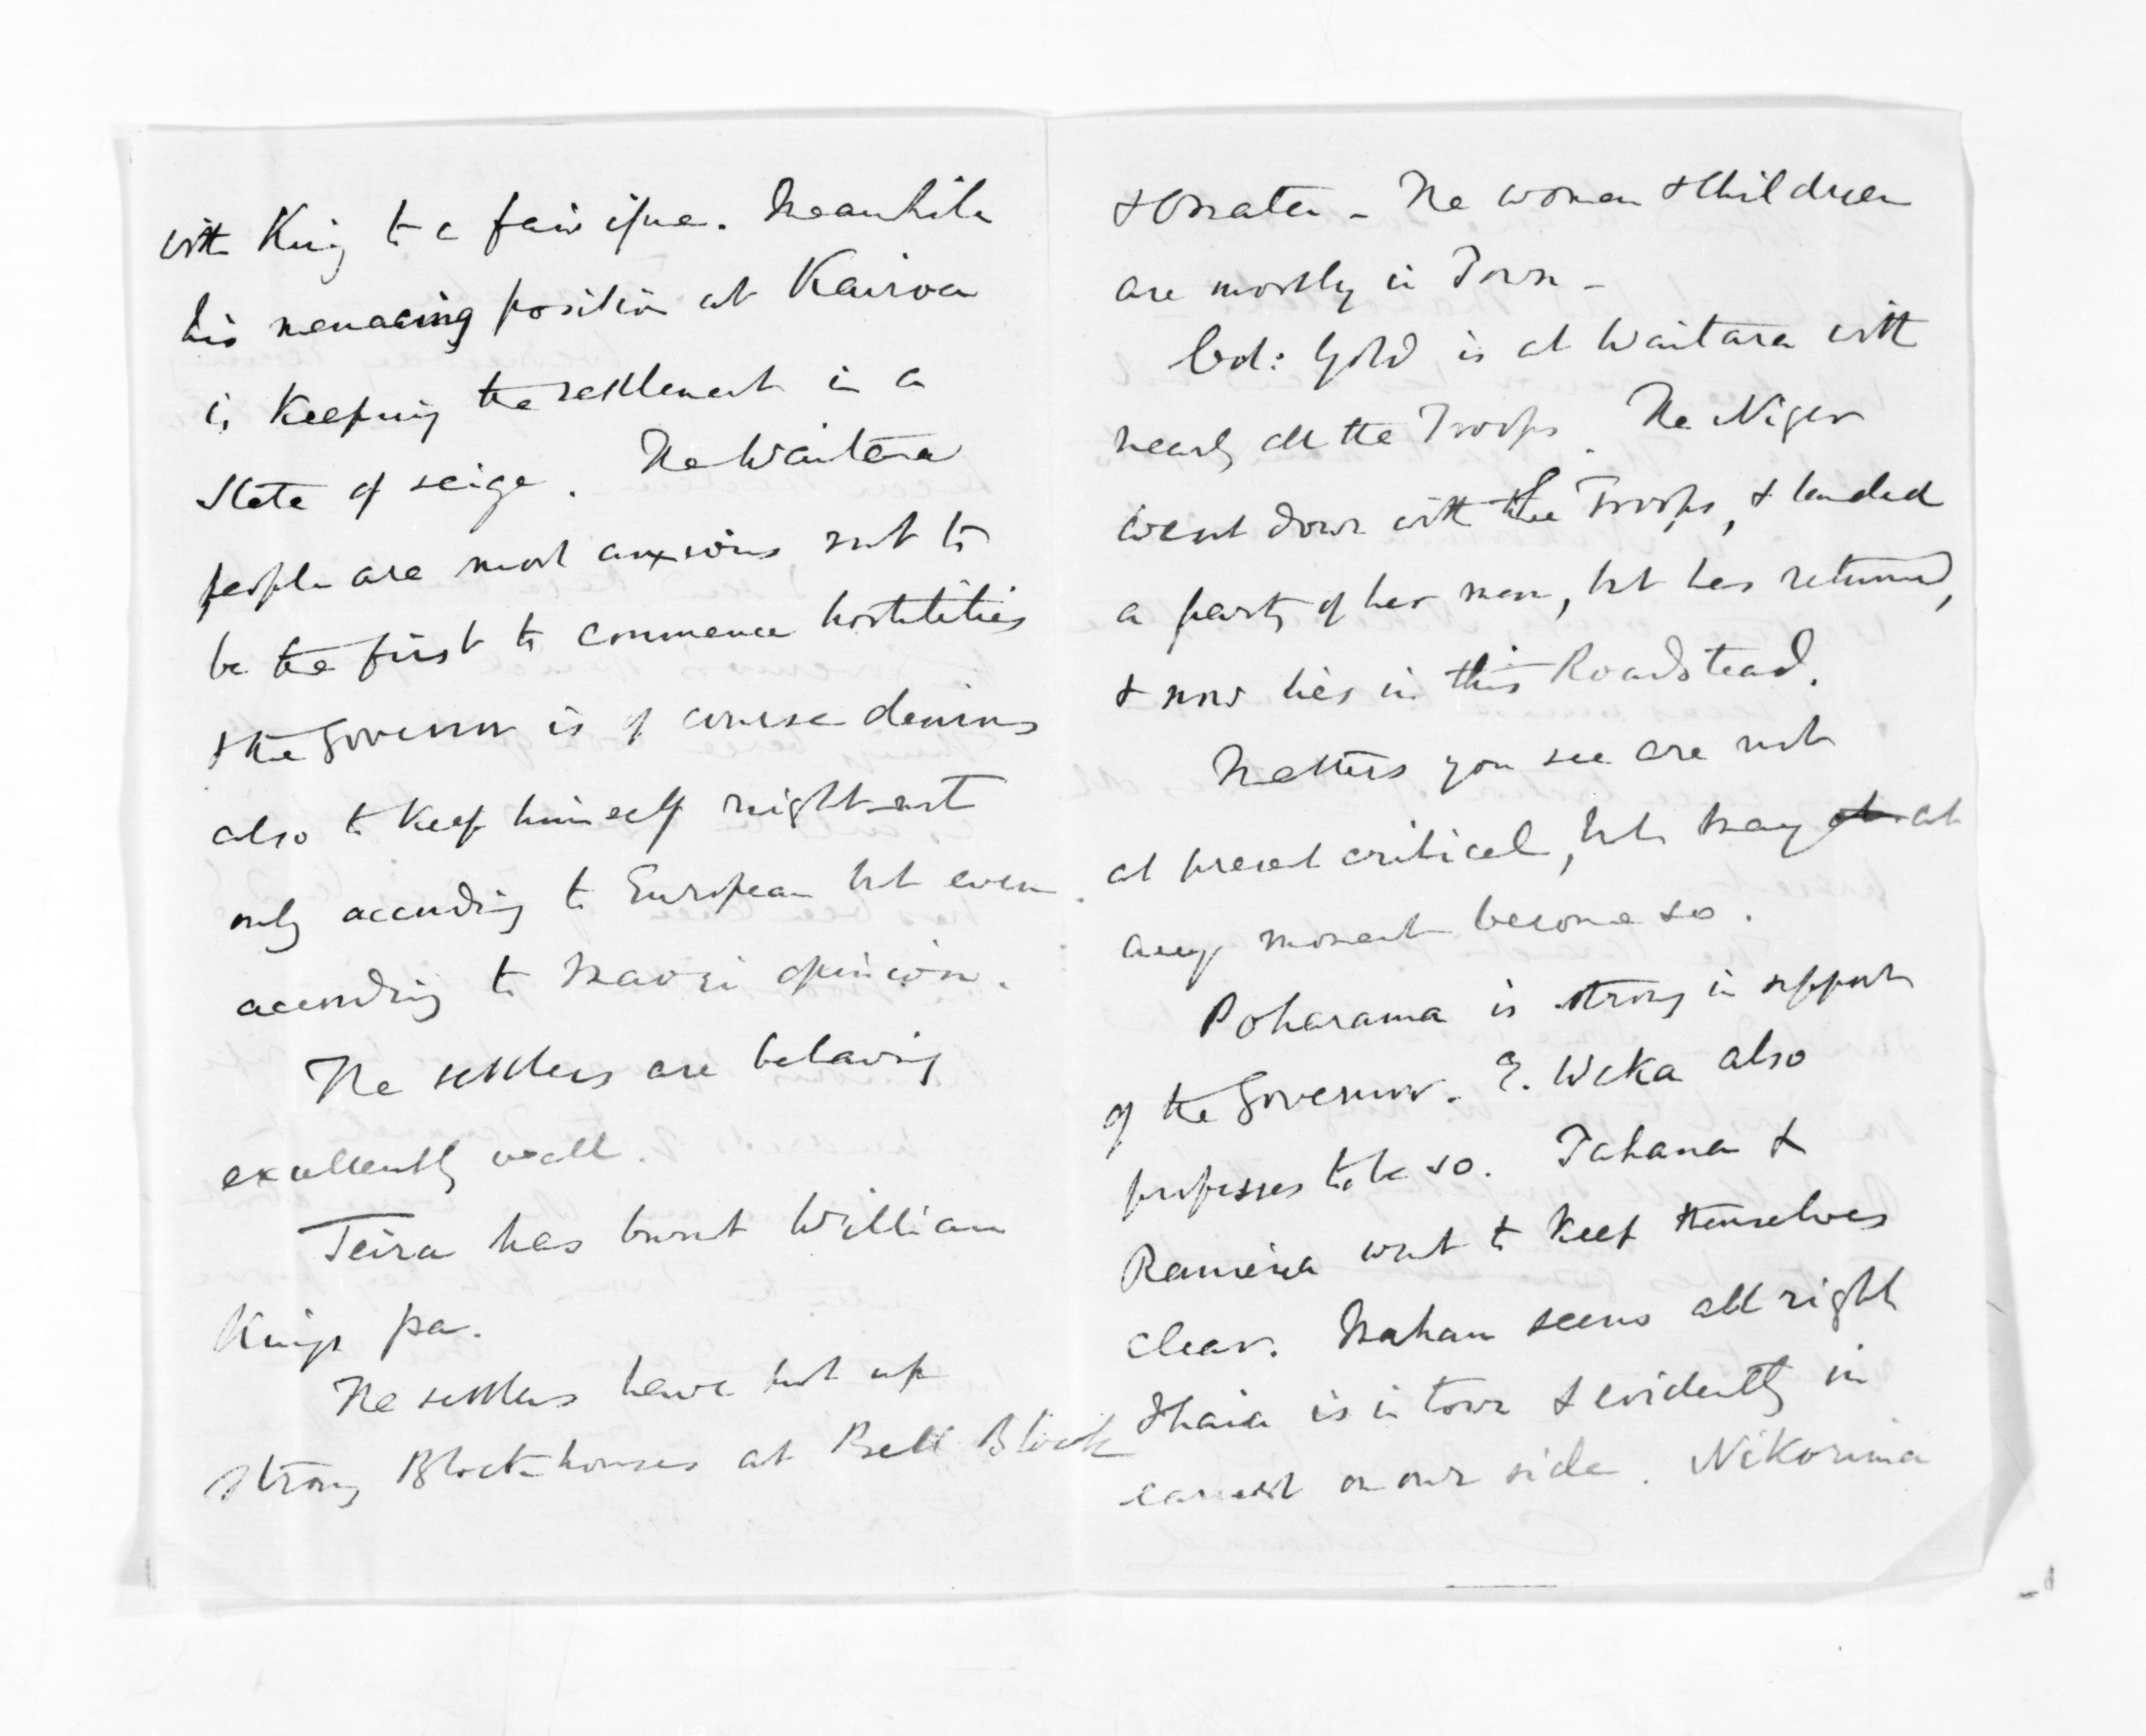 with King to a fair issue. Meanwhile
his menacing position at Kairoa
is Keeping the settlement in a
State of seige. The Waitara
people are most anxious not to
be the first to commence hostilities
& the Governor is of course desirous
also to keep himself right not
only according to European but even
according to Maori opinion.
The settlers are behaving
excellently well.
Teira has burnt William
Kings pa.
The settlers have put up
strong Blockhouses at Bell Block
& Omata - The women & Children
are mostly in Town -
Col: Gold is at Waitara with
nearly all the Troops. The Niger
went down with the Troops, & landed
a party of her men, but has returned,
& now lies in this Roadstead.
Matters you see are not
at present critical, but may at at
any moment become so.
Poharama is strong in support
of the Governor. E. Weka also
professes to be so. Tahana &
Ramiria want to Keep themselves
clear. Mahau seems all right
Ihaia is in town & evidently in
earnest on our side. Nikorima